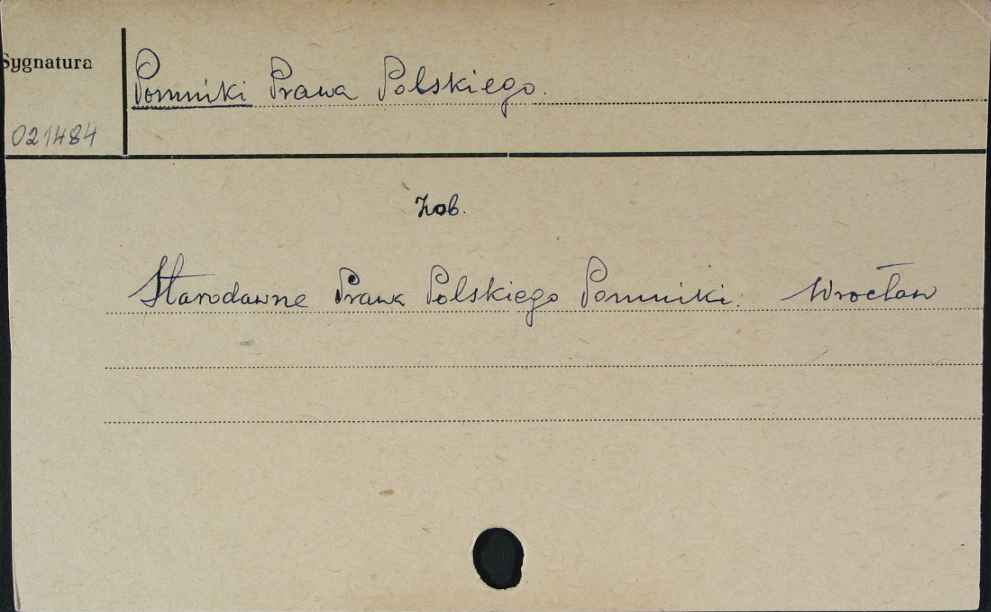 Sygnatura
Pomniki Prawa Polskiego.
021484
Zob.
Starodawne Prawa Polskiego Pomniki. Wrocław